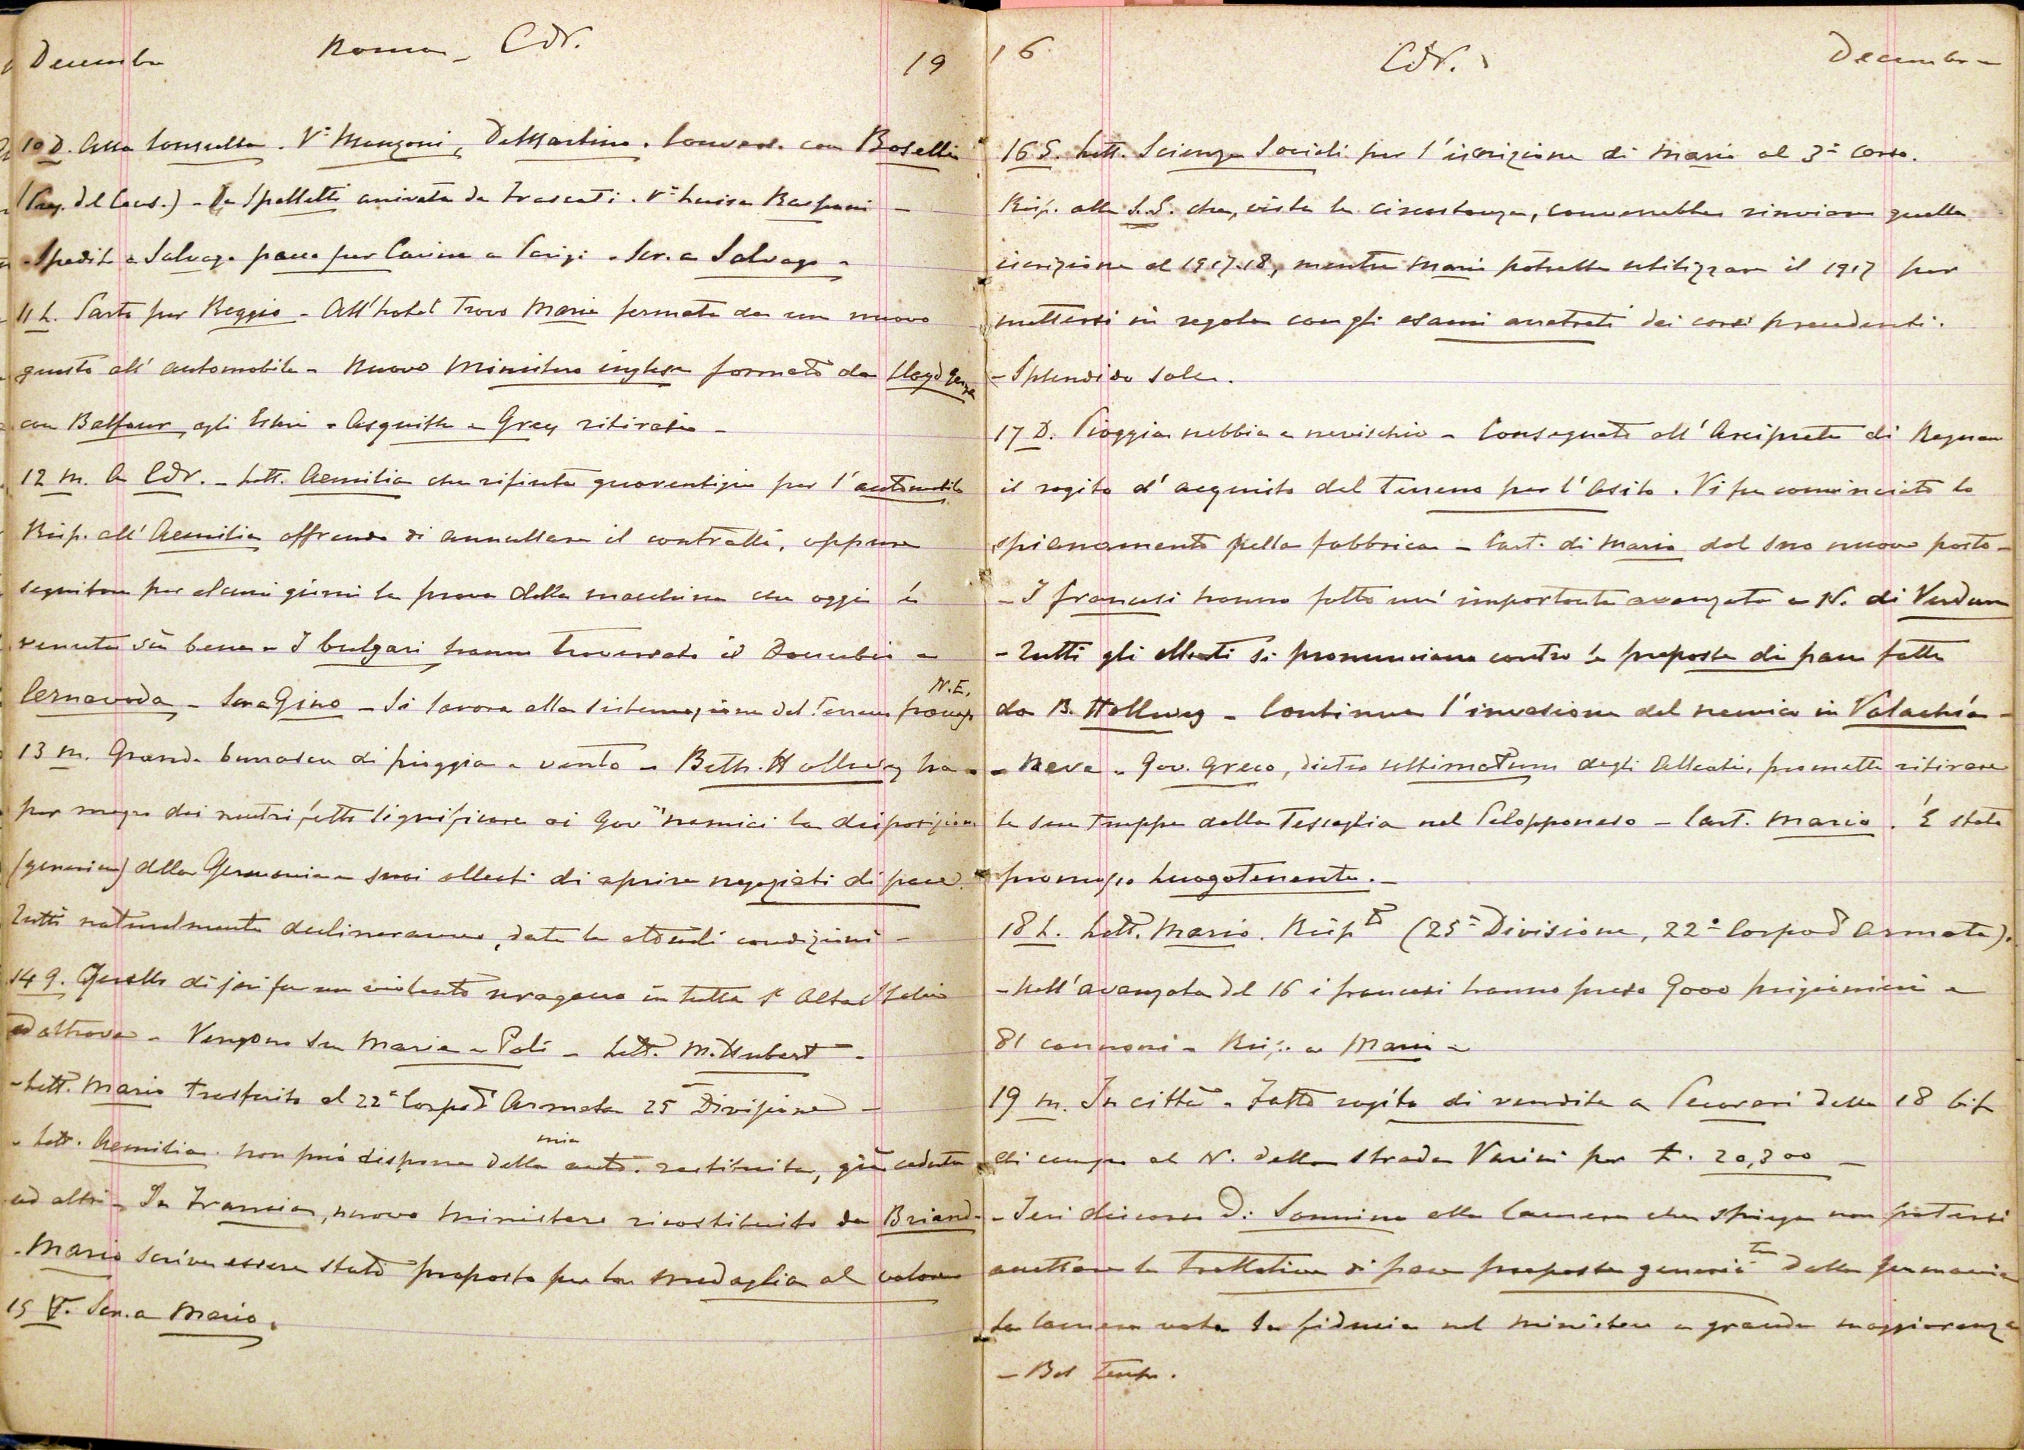 Decembre Roma - CdR. 19
10 D. Alla Consulta. Vª Manzoni, DeMartino. Convers. con Boselli
(Pres. del Cons.) - Da Spalletti arrivata da Frascati. Vª Luisa Raspani -
- Spedito a Salvago pacco per Carina a Parigi - Scr. a Salvago -
11 L. Parto per Reggio - All'hotel trovo Maria fermata da un nuovo
guasto all'automobile - Nuovo Ministero inglese formato da Lloyd George
con Balfour agli Esteri - Asquith e Grey ritirati -
12 M. A CdR. - Lett. Aemilia che rifiuta guarentigia per l'automobile
Risp. all'Aemilia offrendo di annullare il contratto, oppure
seguitare per alcuni giorni la prova della macchina che oggi è
venuta su bene - I bulgari hanno traversato il Danubio a
Cernavoda - Scr. a Gino - Si lavora alla sistemazione del terreno N.E.
13 M. Grande burrasca di pioggia e vento - Beth. Hollweg ha
per mezzo dei neutri fatto significare ai Gov.ⁱ nemici la disposizione
(generica) della Germania e suoi alleati di aprire negoziati di pace.
Tutti naturalmente declineranno, date le attuali condizioni -
14 G. Quello di jeri fu un violento uragano in tutta l'Alta Italia
ed altrove - Vengono su Maria e Poli - Lett. M. Hubert -
- Lett. Mario trasferito al 22º Corpo d'Armata 25ª Divisione -
- Lett. Aemilia. Non può disporre della mia auto. restituita, già ceduta
ad altri - In Francia, nuovo ministero ricostituito da Briand -
- Mario scrive essere stato proposto per la medaglia al valore
15 V. Scr. a Mario.
16 CdR. Decembre
16 S. Lett. Scienze Sociali per l'iscrizione di Mario al 3º corso.
Risp. alle S.S. che, viste le circostanze, converrebbe rinviare quella
iscrizione al 1917-18, mentre Mario potrebbe utilizzare il 1917 per
mettersi in regola cogli esami arretrati dei corsi precedenti.
- Splendido sole.
17 D. Pioggia nebbia e nevischio - Consegnato all'Arciprete di
il rogito d'acquisto del terreno per l'Asilo. Vi fu cominciato lo
spianamento della fabbrica - Cart. di Mario dal suo nuovo posto -
- I francesi hanno fatto un'importante avanzata a N. di Verdun
- Tutti gli alleati si pronunciano contro le proposte di pace fatte
da B. Hollweg - Continua l'invasione del nemico in Valachia -
- Neve - Gov. Greco, dietro ultimatum degli Alleati, promette ritirare
le sue truppe dalla Tessaglia nel Peloponneso - Cart. Mario. È stato
promosso Luogotenente. -
18 L. Lett. Mario. Rispᵗᵒ (25ª Divisione, 22º Corpo d'Armata).
- Nell'avanzata del 16 i francesi hanno preso 9000 prigionieri e
81 cannoni - Risp. a Mario -
19 M. In città - Fatto rogito di vendita a Pecorari delle 18 bif.
di campo al N. della strada Vasini per £. 20,300 -
- Ieri discorso Di Sonnino alla Camera che spiega non potersi
accettare le trattative di pace proposte genericᵗᵉ dalla Germania
La Camera vota la fiducia nel ministero a grande maggioranza
- Bel tempo.